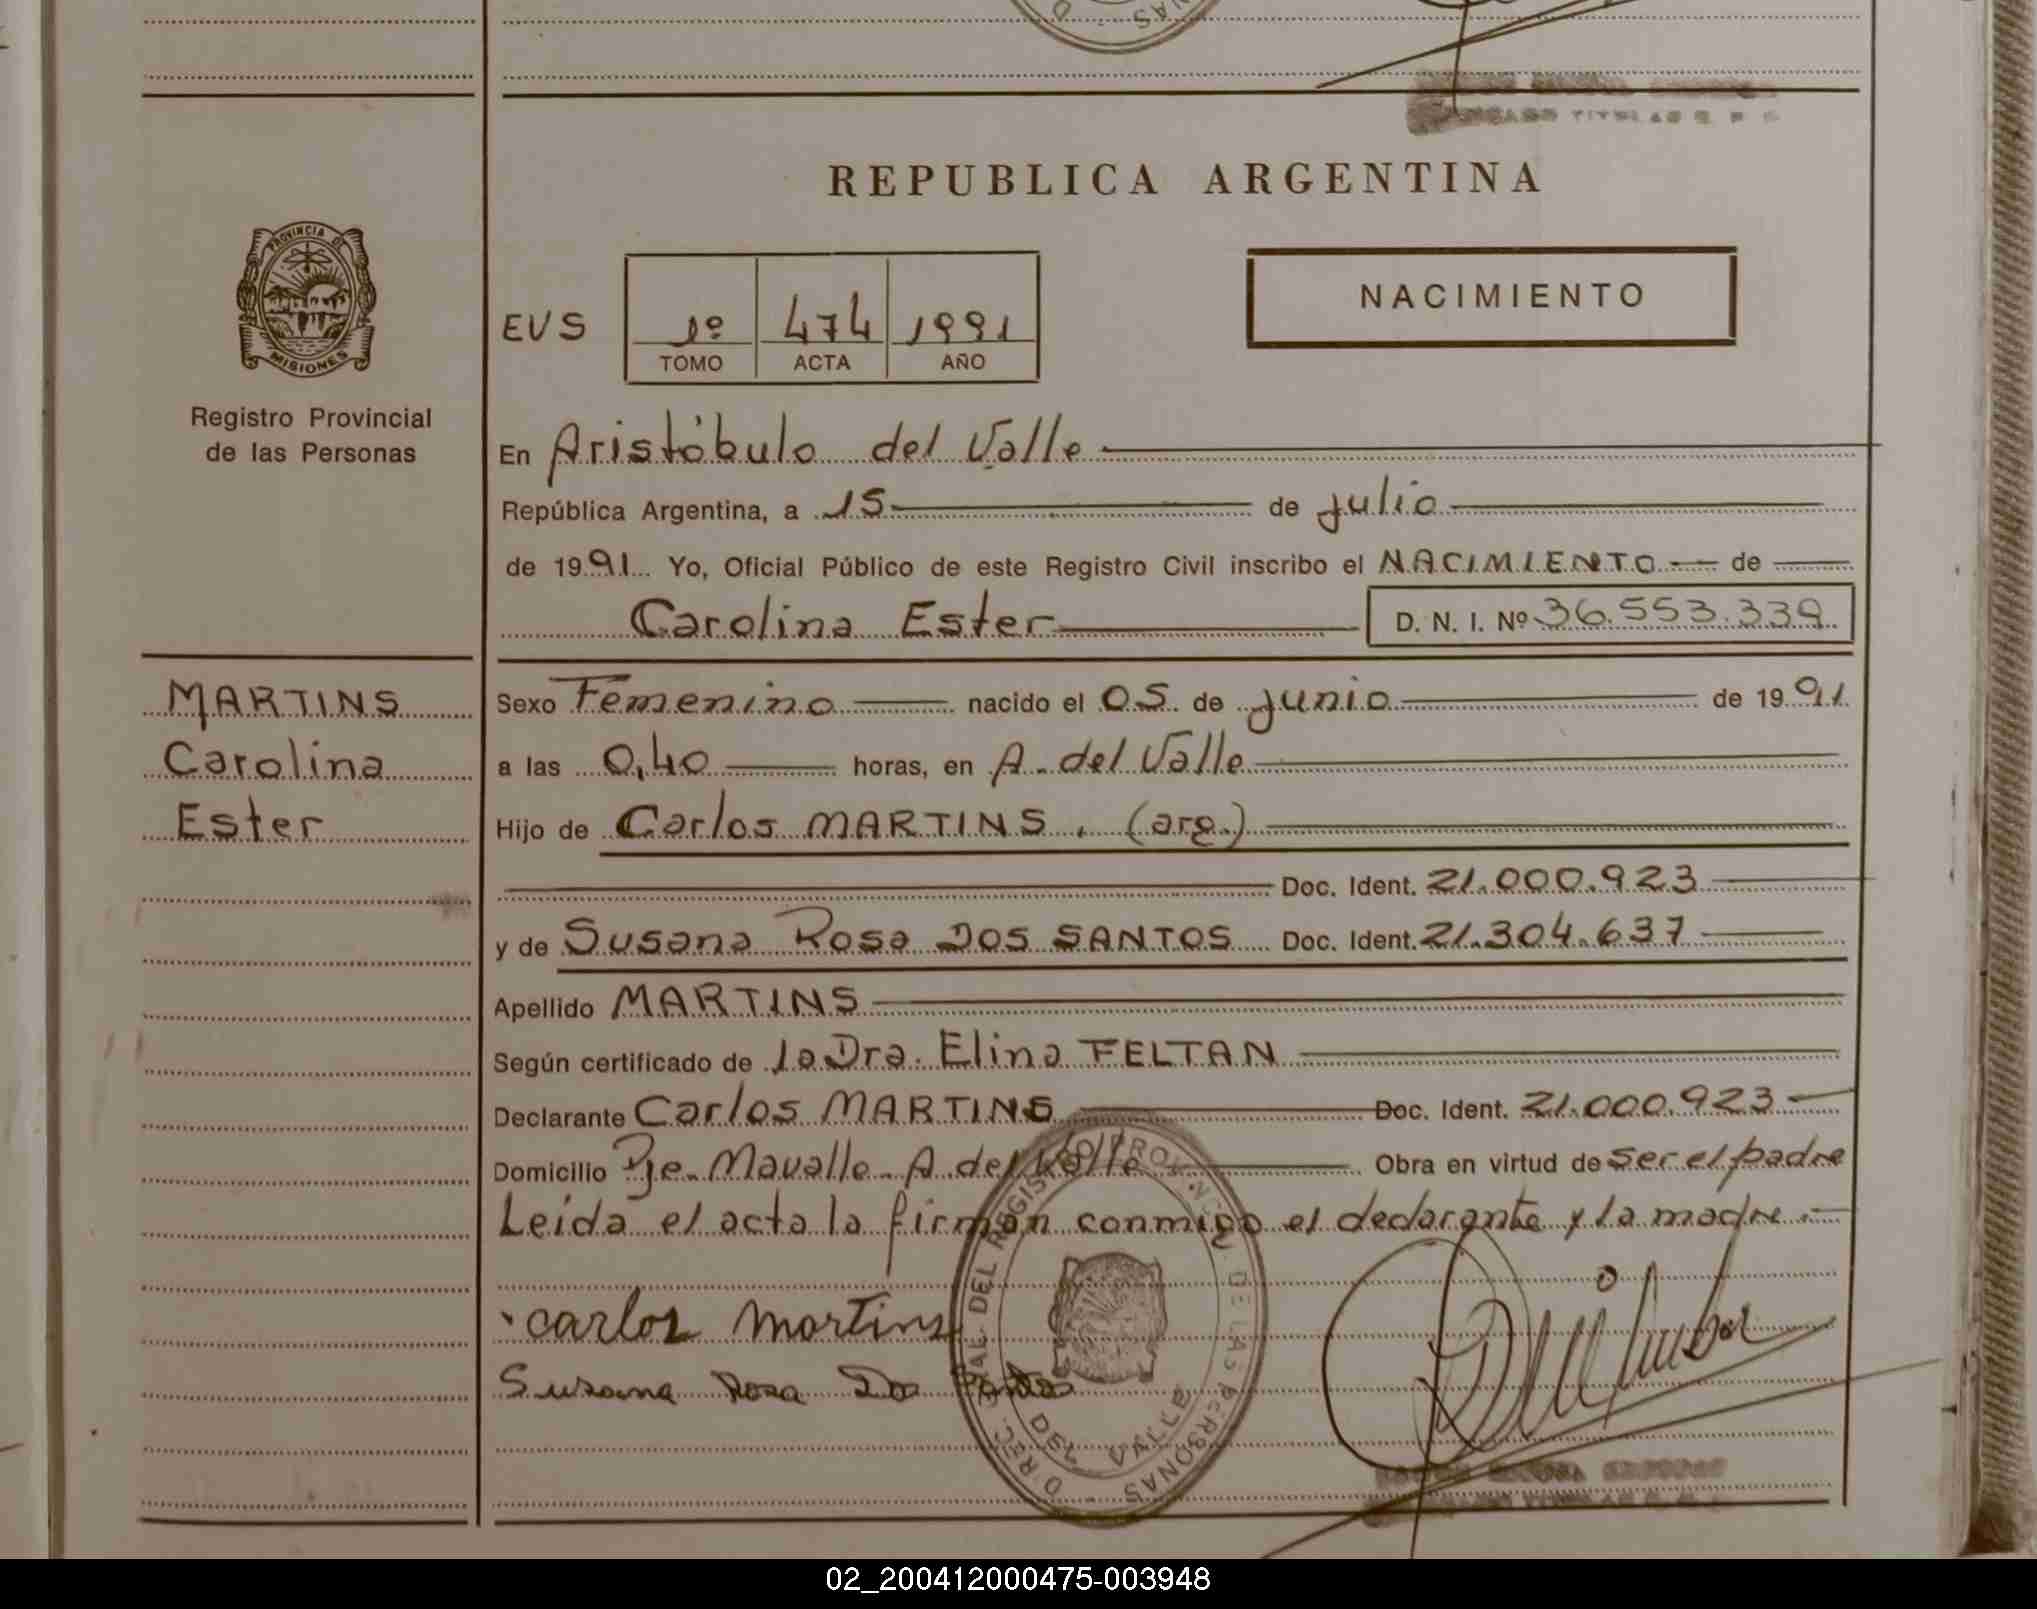 REPUBLICA ARGENTINA
PROVINCIA DE
MISIONES
Registro Provincial
de las Personas
NACIMIENTO
EVS 1º 474 1991
TOMO ACTA AÑO
En Aristóbulo del Valle
República Argentina, a 15 de julio
de 1991 Yo, Oficial Público de este Registro Civil inscribo el NACIMIENTO de
Carolina Ester D. N. I. Nº 36.553.339
MARTINS
Carolina
Ester
Sexo Femenino nacido el 05 de junio de 1991
a las 0,40 horas, en A. del Valle
Hijo de Carlos MARTINS. (arg.)
Doc. Ident. 21.000.923
y de Susana Rosa DOS SANTOS Doc. Ident. 21.304.637
Apellido MARTINS
Según certificado de la Dra. Elina FELTAN
Declarante Carlos MARTINS Doc. Ident. 21.000.923
Domicilio Pje. Mavalle - A. del Valle Obra en virtud de ser el padre
Leída el acta la firman conmigo el declarante y la madre.-
carlos martins
Susana Rosa Dos Santos
DEL VALLE
02_200412000475-003948